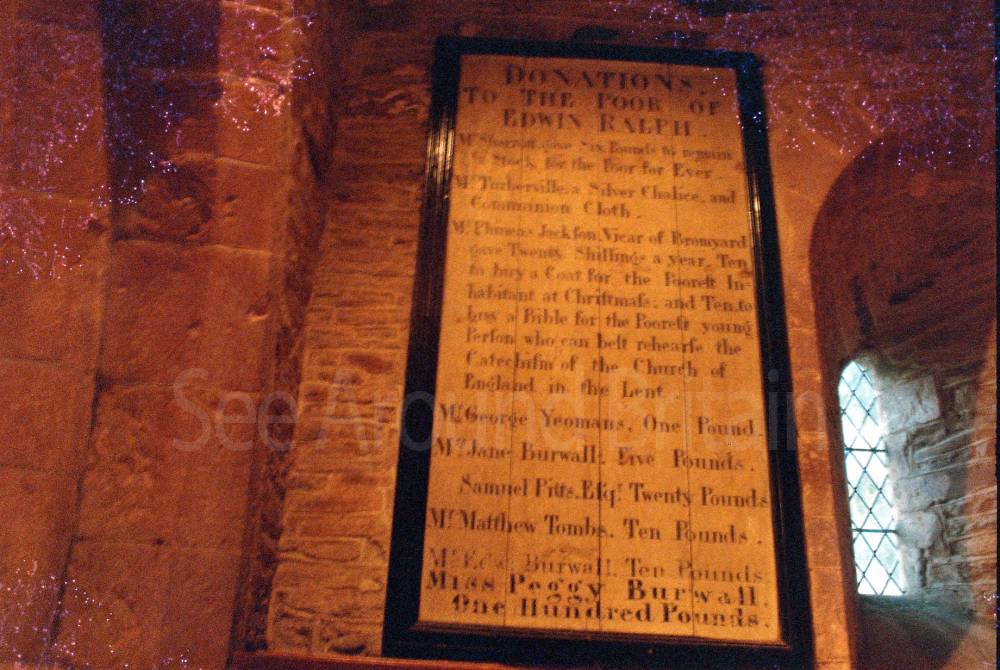 DONATIONS.
TO THE POOR OF
EDWIN RALPH.
Mr Sherrott gave Six Pounds to remain
in Stock for the Poor for Ever.
Mr Turberville, a Silver Chalice, and
Communion Cloth.
Mr Phineas Jackſon, Vicar of Bromyard
gave Twenty Shillings a year, Ten
to buy a Coat for the Pooreſt In=
habitant at Chriſtmaſs: and Ten, to
buy a Bible for the Pooreſt young
Perſon who can beſt rehearſe the
Catechiſm of the Church of
England in the Lent.
Mr George Yeomans, One Pound.
Mrs Jane Burwall, Five Pounds.
Samuel Pitts, Eſqr Twenty Pounds
Mr Matthew Tombs, Ten Pounds.
Mr Edwd Burwall, Ten Pounds
Miss Peggy Burwall.
One Hundred Pounds.
See Around Britain